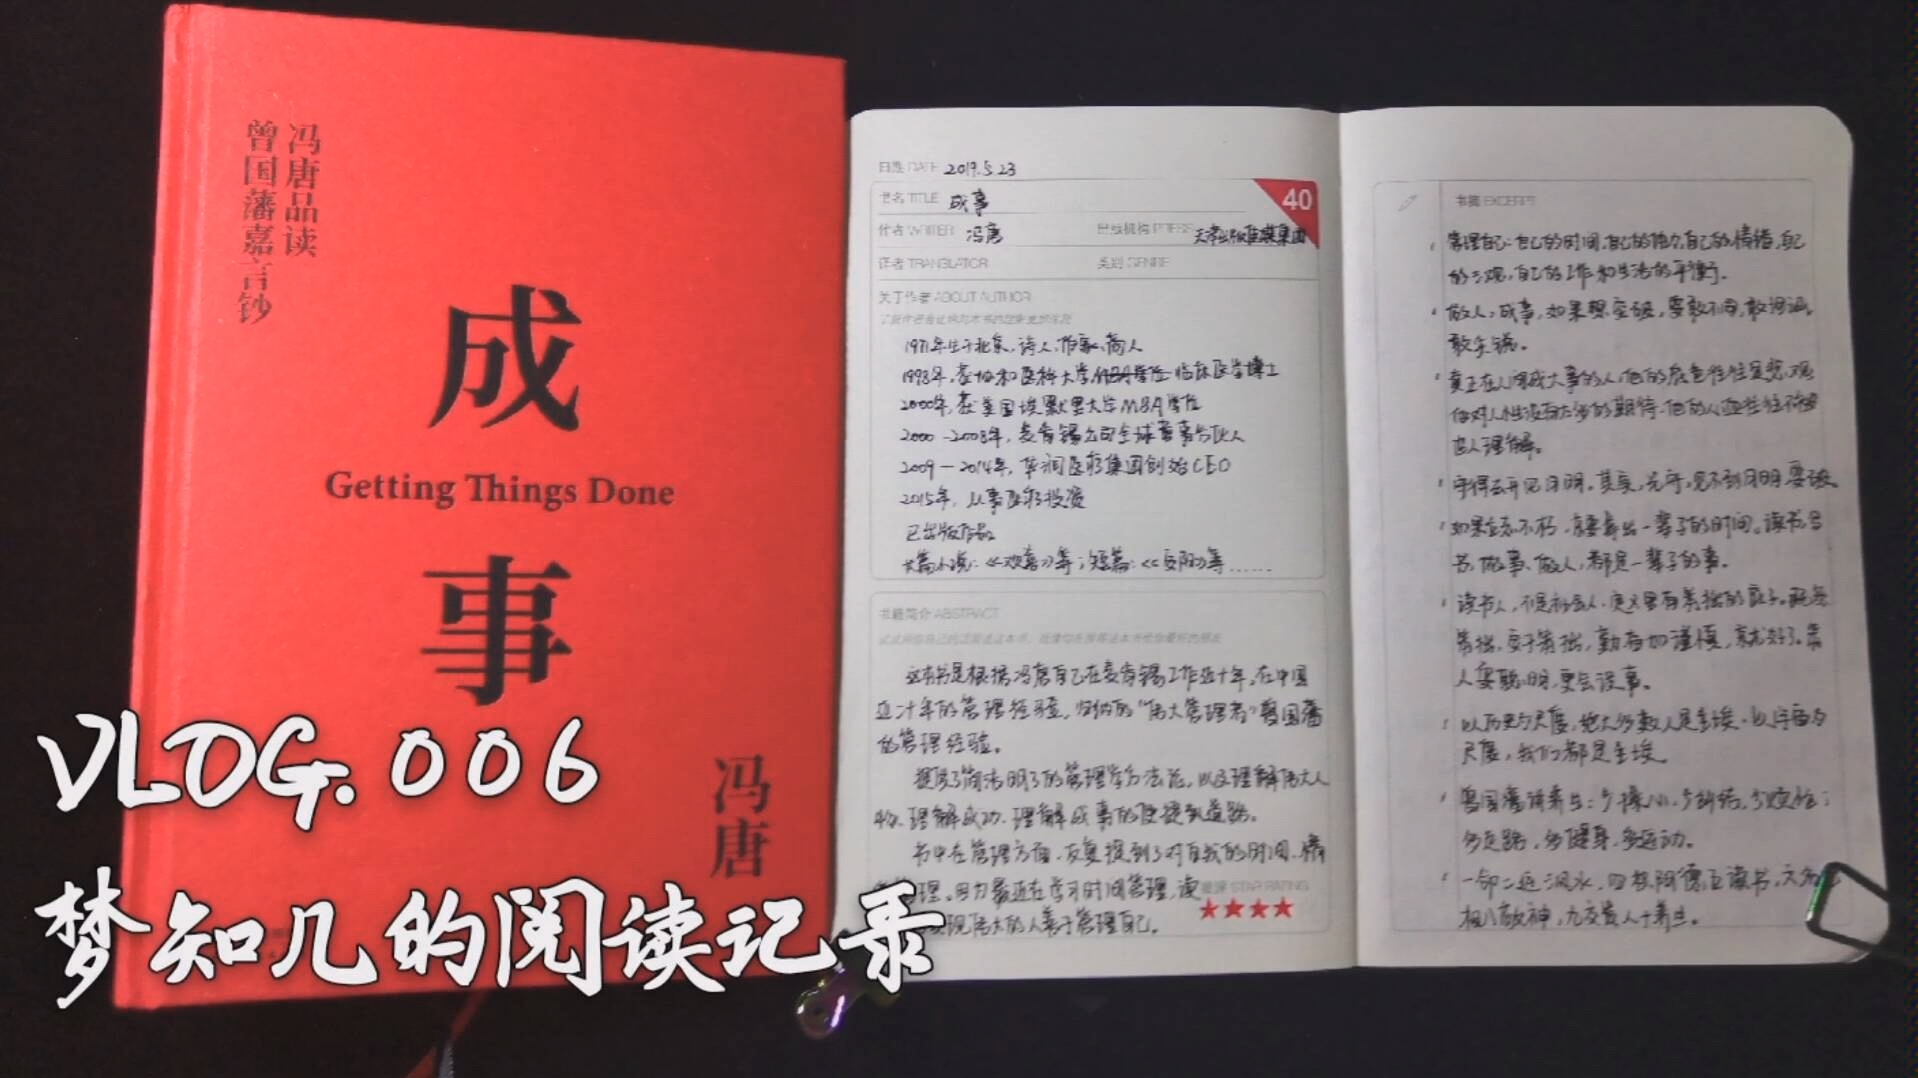 冯唐品读
曾国藩嘉言钞
成
Getting Things Done
事
冯唐
VLOG.006
梦知几的阅读记录
日期 DATE 2019.5.23
书名 TITLE 成事
40
作者 WRITER 冯唐 出版机构 PRESS 天津出版传媒集团
译者 TRANSLATOR 类别 GENRE
关于作者 ABOUT AUTHOR
1971年生于北京,诗人,作家,商人
1998年,获协和医科大学 临床医学博士
2000年,获美国埃默里大学MBA学位
2000-2008年,麦肯锡公司全球董事合伙人
2009-2014年,华润医疗集团创始CEO
2015年,从事医疗投资
已出版作品
长篇小说:《欢喜》等;短篇:《安阳》等......
书籍简介 ABSTRACT
这本书是根据冯唐自己在麦肯锡工作近十年,在中国
近二十年的管理经验,归纳的"伟大管理者"曾国藩
的管理经验。
提供了简洁明了的管理学方法论,以及理解伟大人
物、理解成功、理解成事的便捷道路。
书中在管理方面,反复提到了对自我的时间、情
管理。因为最近在学习时间管理,读
现伟大的人善于管理自己。
STAR RATING
★★★★
书摘 EXCERPT
管理自己:自己的时间,自己的能力,自己的情绪,自己
的三观,自己的工作和生活的平衡。
做人,成事,如果想突破,要敢不同,敢
敢失败。
真正在人间成大事的人,他的底色往往是悲观
对人性没有太多的期待,他的
世人理解。
守得云开见月明。其实,光守,见不到月明,要
如果立志不朽,就要拿出一辈子的时间。读书,写
书,做事,做人,都是一辈子的事。
读书人,不是社会人,
笨拙,安于笨拙,勤奋加谨慎,就好了。笨
人耍聪明,更会误事。
以历史为尺度,绝大多数人是尘埃。以宇宙为
尺度,我们都是尘埃。
曾国藩讲养生:少操心,少纠结,少
多走路,多健身,多运动。
一命二运三风水,四积阴德五读书,六名七
相八敬神,九交贵人十养生。